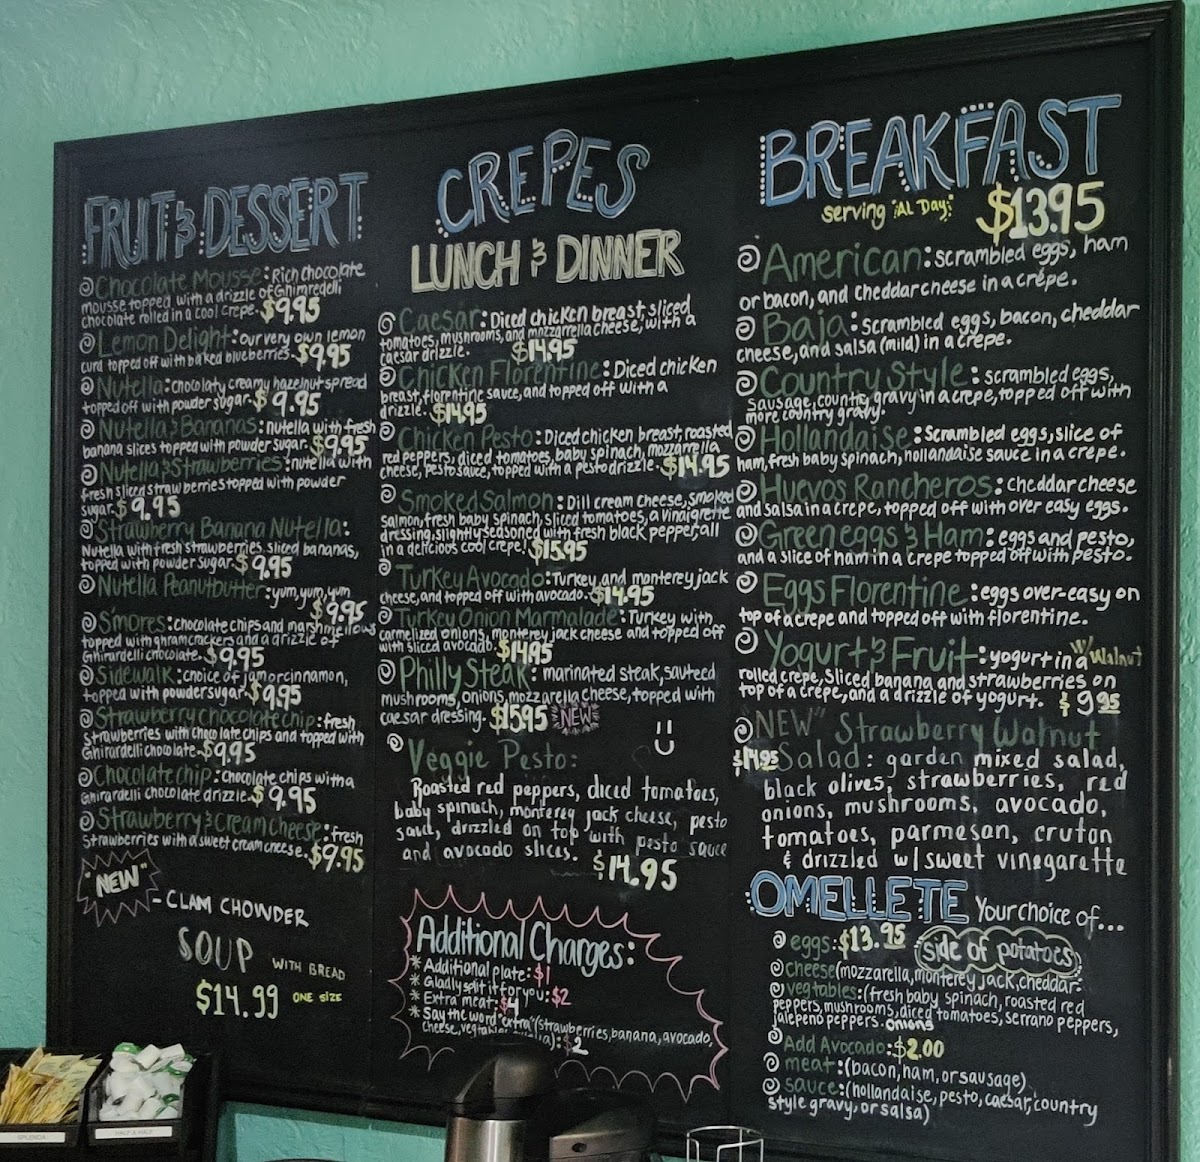 FRUIT & DESSERT
Chocolate Mousse: Rich chocolate
mousse topped with a drizzle of Ghimredelli
chocolate rolled in a cool crepe. $9.95
Lemon Delight: our very own lemon
curd topped off with baked blueberries. $9.95
Nutella: chocolaty creamy hazelnut spread
topped off with powder sugar. $9.95
Nutella & Bananas: nutella with fresh
banana slices topped with powder sugar. $9.95
Nutella & Strawberries: nutella with
fresh sliced strawberries topped with powder
sugar. $9.95
Strawberry Banana Nutella:
Nutella with fresh strawberries, sliced bananas,
topped with powder sugar. $9.95
Nutella Peanutbutter: yum, yum, yum
$9.95
S'mores: chocolate chips and marshmellows
topped with ghramcrackers and a drizzle of
Ghirardelli chocolate. $9.95
Sidewalk: choice of jam or cinnamon,
topped with powder sugar. $9.95
Strawberry Chocolate chip: fresh
Strawberries with chocolate chips and topped with
Ghirardelli chocolate. $9.95
Chocolate chip: Chocolate chips with a
Ghirardelli chocolate drizzle. $9.95
Strawberry & Cream Cheese: fresh
Strawberries with a sweet cream cheese. $9.95
"NEW"
- CLAM CHOWDER
SOUP WITH BREAD
$14.99 ONE SIZE
CREPES
LUNCH & DINNER
Caesar: Diced chicken breast, sliced
tomatoes, mushrooms, and mozzarella cheese, with a
caesar drizzle. $14.95
Chicken Florentine: Diced chicken
breast, florentine sauce, and topped off with a
drizzle. $14.95
Chicken Pesto: Diced chicken breast, roasted
red peppers, diced tomatoes, baby spinach, mozzarella
cheese, pesto sauce, topped with a pesto drizzle. $14.95
Smoked Salmon: Dill cream cheese, smoked
Salmon, fresh baby spinach, sliced tomatoes, a vinaigrette
dressing, slightly seasoned with fresh black pepper, all
in a delicious cool crepe! $15.95
Turkey Avocado: Turkey and monterey jack
cheese, and topped off with avocado. $14.95
Turkey Onion Marmalade: Turkey with
carmelized onions, monterey jack cheese and topped off
with sliced avocado. $14.95
Philly Steak: marinated steak, sauteed
mushrooms, onions, mozzarella cheese, topped with
caesar dressing. $15.95 NEW
Veggie Pesto:
Roasted red peppers, diced tomatoes,
baby spinach, monterey jack cheese, pesto
sauce, drizzled on top with pesto sauce
and avocado slices. $14.95
Additional Charges:
* Additional plate: $1
* Gladly split it for you: $2
* Extra meat: $4
* Say the word "extra" (strawberries, banana, avocado,
cheese, $2
BREAKFAST
serving "AL Day" $13.95
American: scrambled eggs, ham
or bacon, and cheddar cheese in a crépe.
Baja: Scrambled eggs, bacon, cheddar
cheese, and salsa (mild) in a crepe.
Country Style: scrambled eggs,
sausage, country gravy in a crepe, topped off with
more country gravy.
Hollandaise: Scrambled eggs, slice of
ham, fresh baby spinach, hollandaise sauce in a crepe.
Huevos Rancheros: cheddar cheese
and salsa in a crepe, topped off with over easy eggs.
Green eggs & Ham: eggs and pesto,
and a slice of ham in a crepe topped off with pesto.
Eggs Florentine: eggs over-easy on
top of a crepe and topped off with florentine.
Yogurt & Fruit: yogurt in a w/ walnut
rolled crepe, Sliced banana and strawberries on
top of a crepe, and a drizzle of yogurt. $9.95
"NEW" Strawberry Walnut
$14.95 Salad: garden mixed salad,
black olives, strawberries, red
onions, mushrooms, avocado,
tomatoes, parmesan, cruton
& drizzled w/ sweet vinegarette
OMELLETE Your choice of...
eggs: $13.95 side of potatoes
cheese (mozzarella, monterey jack, cheddar
vegtables: (fresh baby spinach, roasted red
peppers, mushrooms, diced tomatoes, serrano peppers,
jalepeno peppers. onions
Add Avocado: $2.00
meat: (bacon, ham, or sausage)
sauce: (hollandaise, pesto, caesar, country
style gravy, or salsa)
SPLENDA
HALF & HALF